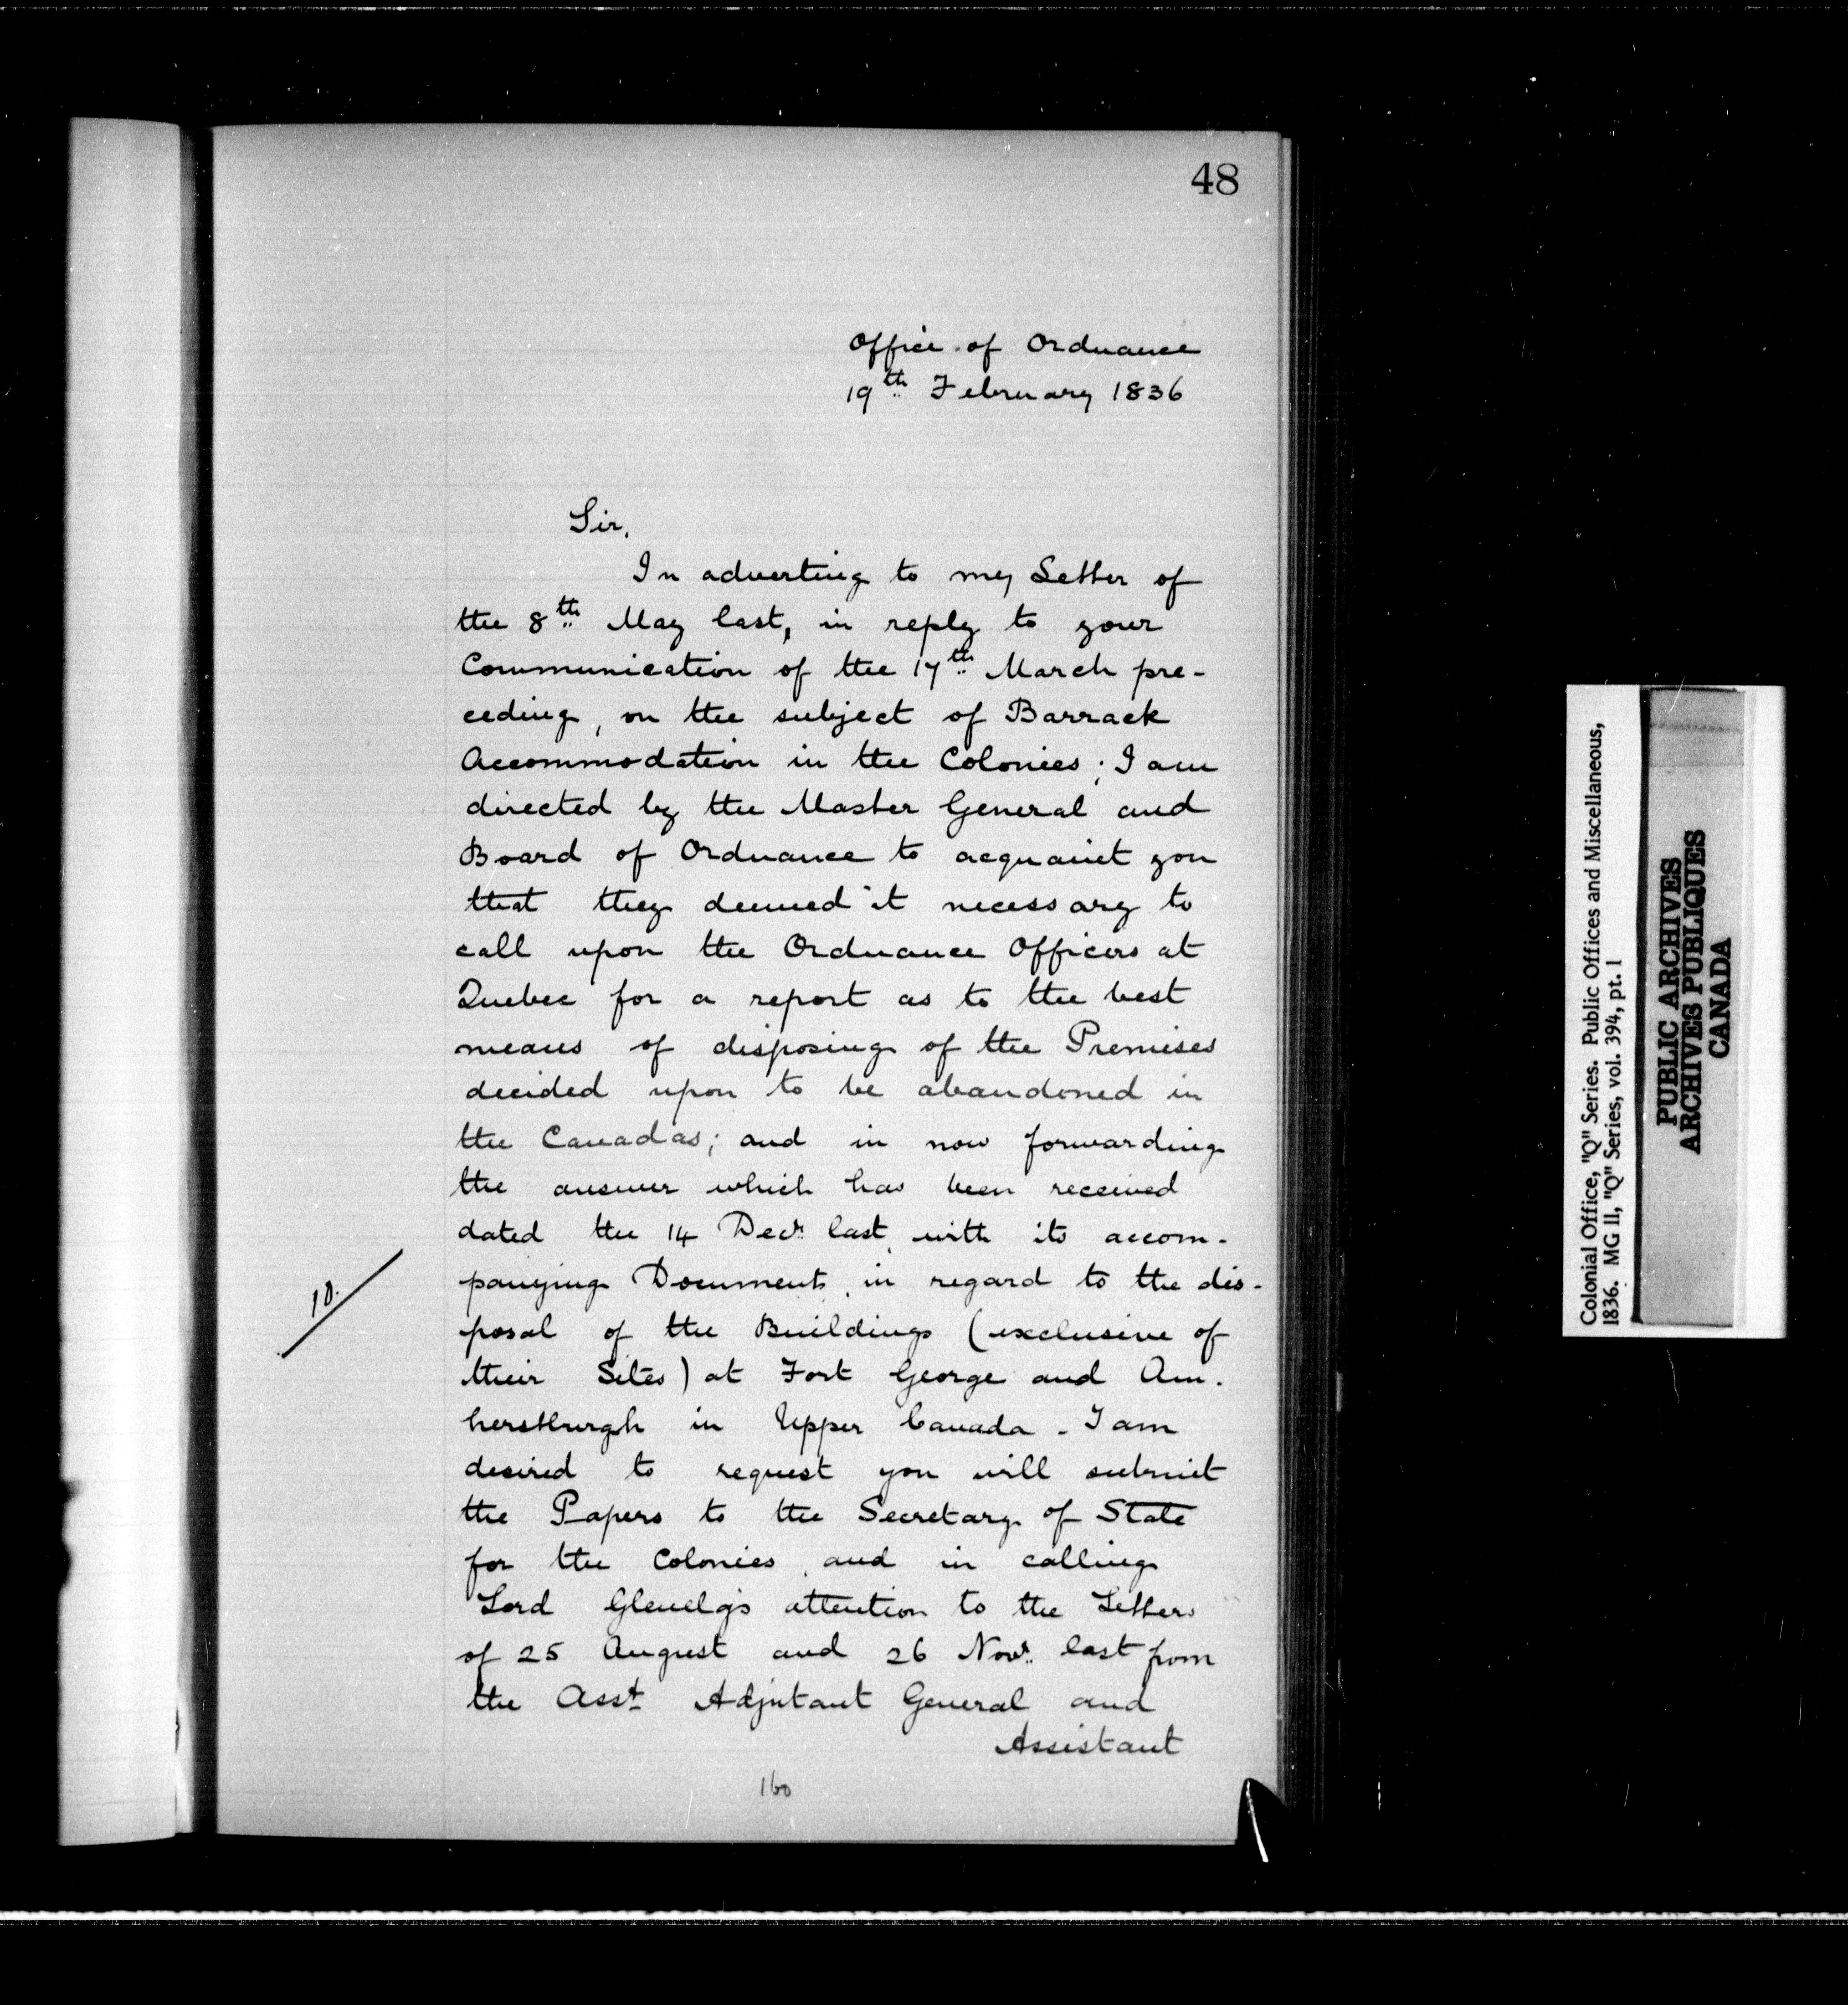 48
Office of Ordnance
19th February 1836
Sir,
In adverting to my Letter of
the 8th May last, in reply to your
Communication of the 17th March pre-
ceding, on the subject of Barrack
Accommodation in the Colonies; I am
directed by the Master General and
Board of Ordnance to acquaint you
that they deemed it necessary to
call upon the Ordnance Officers at
Quebec for a report as to the best
means of disposing of the Premises
decided upon to be abandoned in
the Canadas; and in now forwarding
the answer which has been received
dated the 14 Decr. last, with its accom-
panying Documents, in regard to the dis-
10.
posal of the Buildings (exclusive of
their Sites) at Fort George and Am-
herstburgh in Upper Canada - I am
desired to request you will submit
the Papers to the Secretary of State
for the Colonies, and in calling
Lord Glenelg's attention to the Letters
of 25 August and 26 Novr. last from
the Asst. Adjutant General and
Assistant
160
Colonial Office, "Q" Series. Public Offices and Miscellaneous,
1836. MG 11, "Q" Series, vol. 394, pt. 1
PUBLIC ARCHIVES
ARCHIVES PUBLIQUES
CANADA